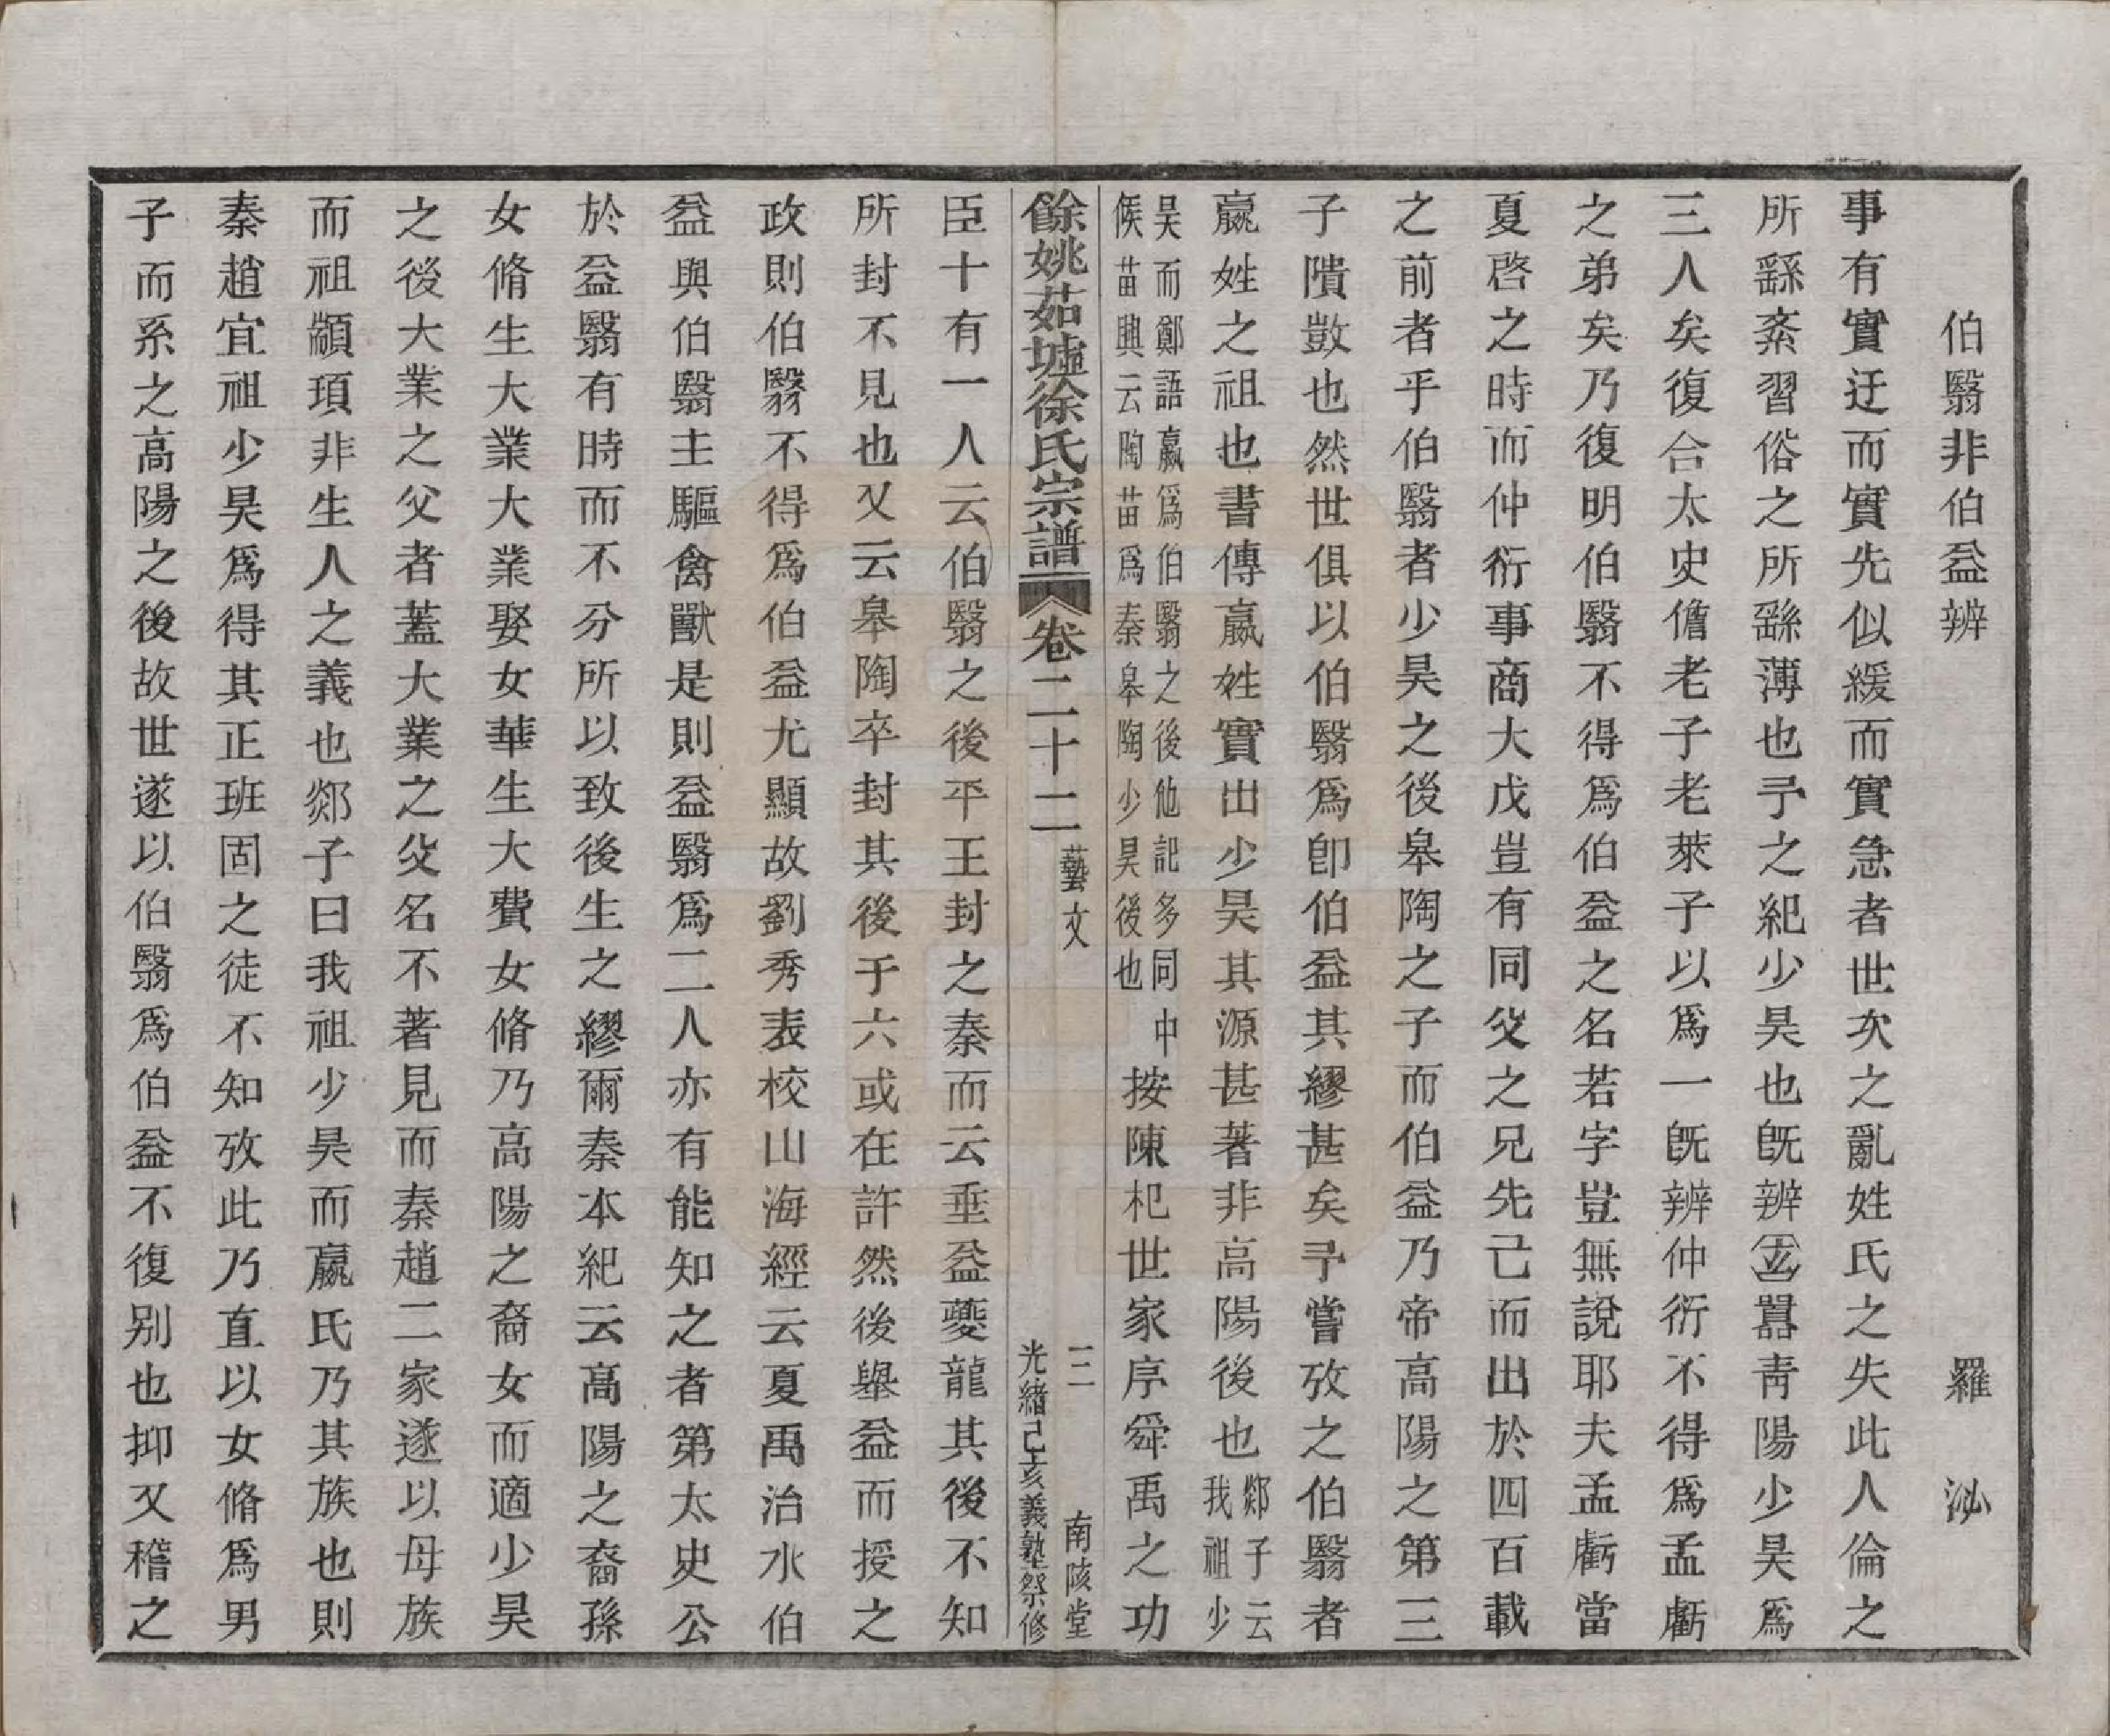 伯翳非伯益辨　羅泌
事有實迂而實先似緩而實急者世次之亂姓氏之失此人倫之
所繇紊習俗之所繇薄也予之紀少昊也旣辨玄囂靑陽少昊爲
三人矣復合太史儋老子老萊子以爲一旣辨仲衍不得爲孟虧
之弟矣乃復明伯翳不得爲伯益之名若字豈無說耶夫孟虧當
夏啓之時而仲衍事商大戊豈有同父之兄先己而出於四百載
之前者乎伯翳者少昊之後皋陶之子而伯益乃帝高陽之第三
子隤敱也然世俱以伯翳爲卽伯益其繆甚矣予嘗攷之伯翳者
嬴姓之祖也書傳嬴姓實出少昊其源甚著非高陽後也郯子云我祖少
昊而鄭語嬴爲伯翳之後他記多同中候苗興云陶苗爲秦皋陶少昊後也按陳杞世家序舜禹之功
餘姚茹墟徐氏宗譜　卷二十二　藝文　三　南陔堂　光緖己亥義塾祭修
臣十有一人云伯翳之後平王封之秦而云垂益夔龍其後不知
所封不見也又云皋陶卒封其後于六或在許然後舉益而授之
政則伯翳不得爲伯益尤顯故劉秀表校山海經云夏禹治水伯
益與伯翳主驅禽獸是則益翳爲二人亦有能知之者第太史公
於益翳有時而不分所以致後生之繆爾秦本紀云高陽之裔孫
女脩生大業大業娶女華生大費女脩乃高陽之裔女而適少昊
之後大業之父者蓋大業之父名不著見而秦趙二家遂以母族
而祖顓頊非生人之義也郯子曰我祖少昊而嬴氏乃其族也則
秦趙宜祖少昊爲得其正班固之徒不知攷此乃直以女脩爲男
子而系之高陽之後故世遂以伯翳爲伯益不復别也抑又稽之